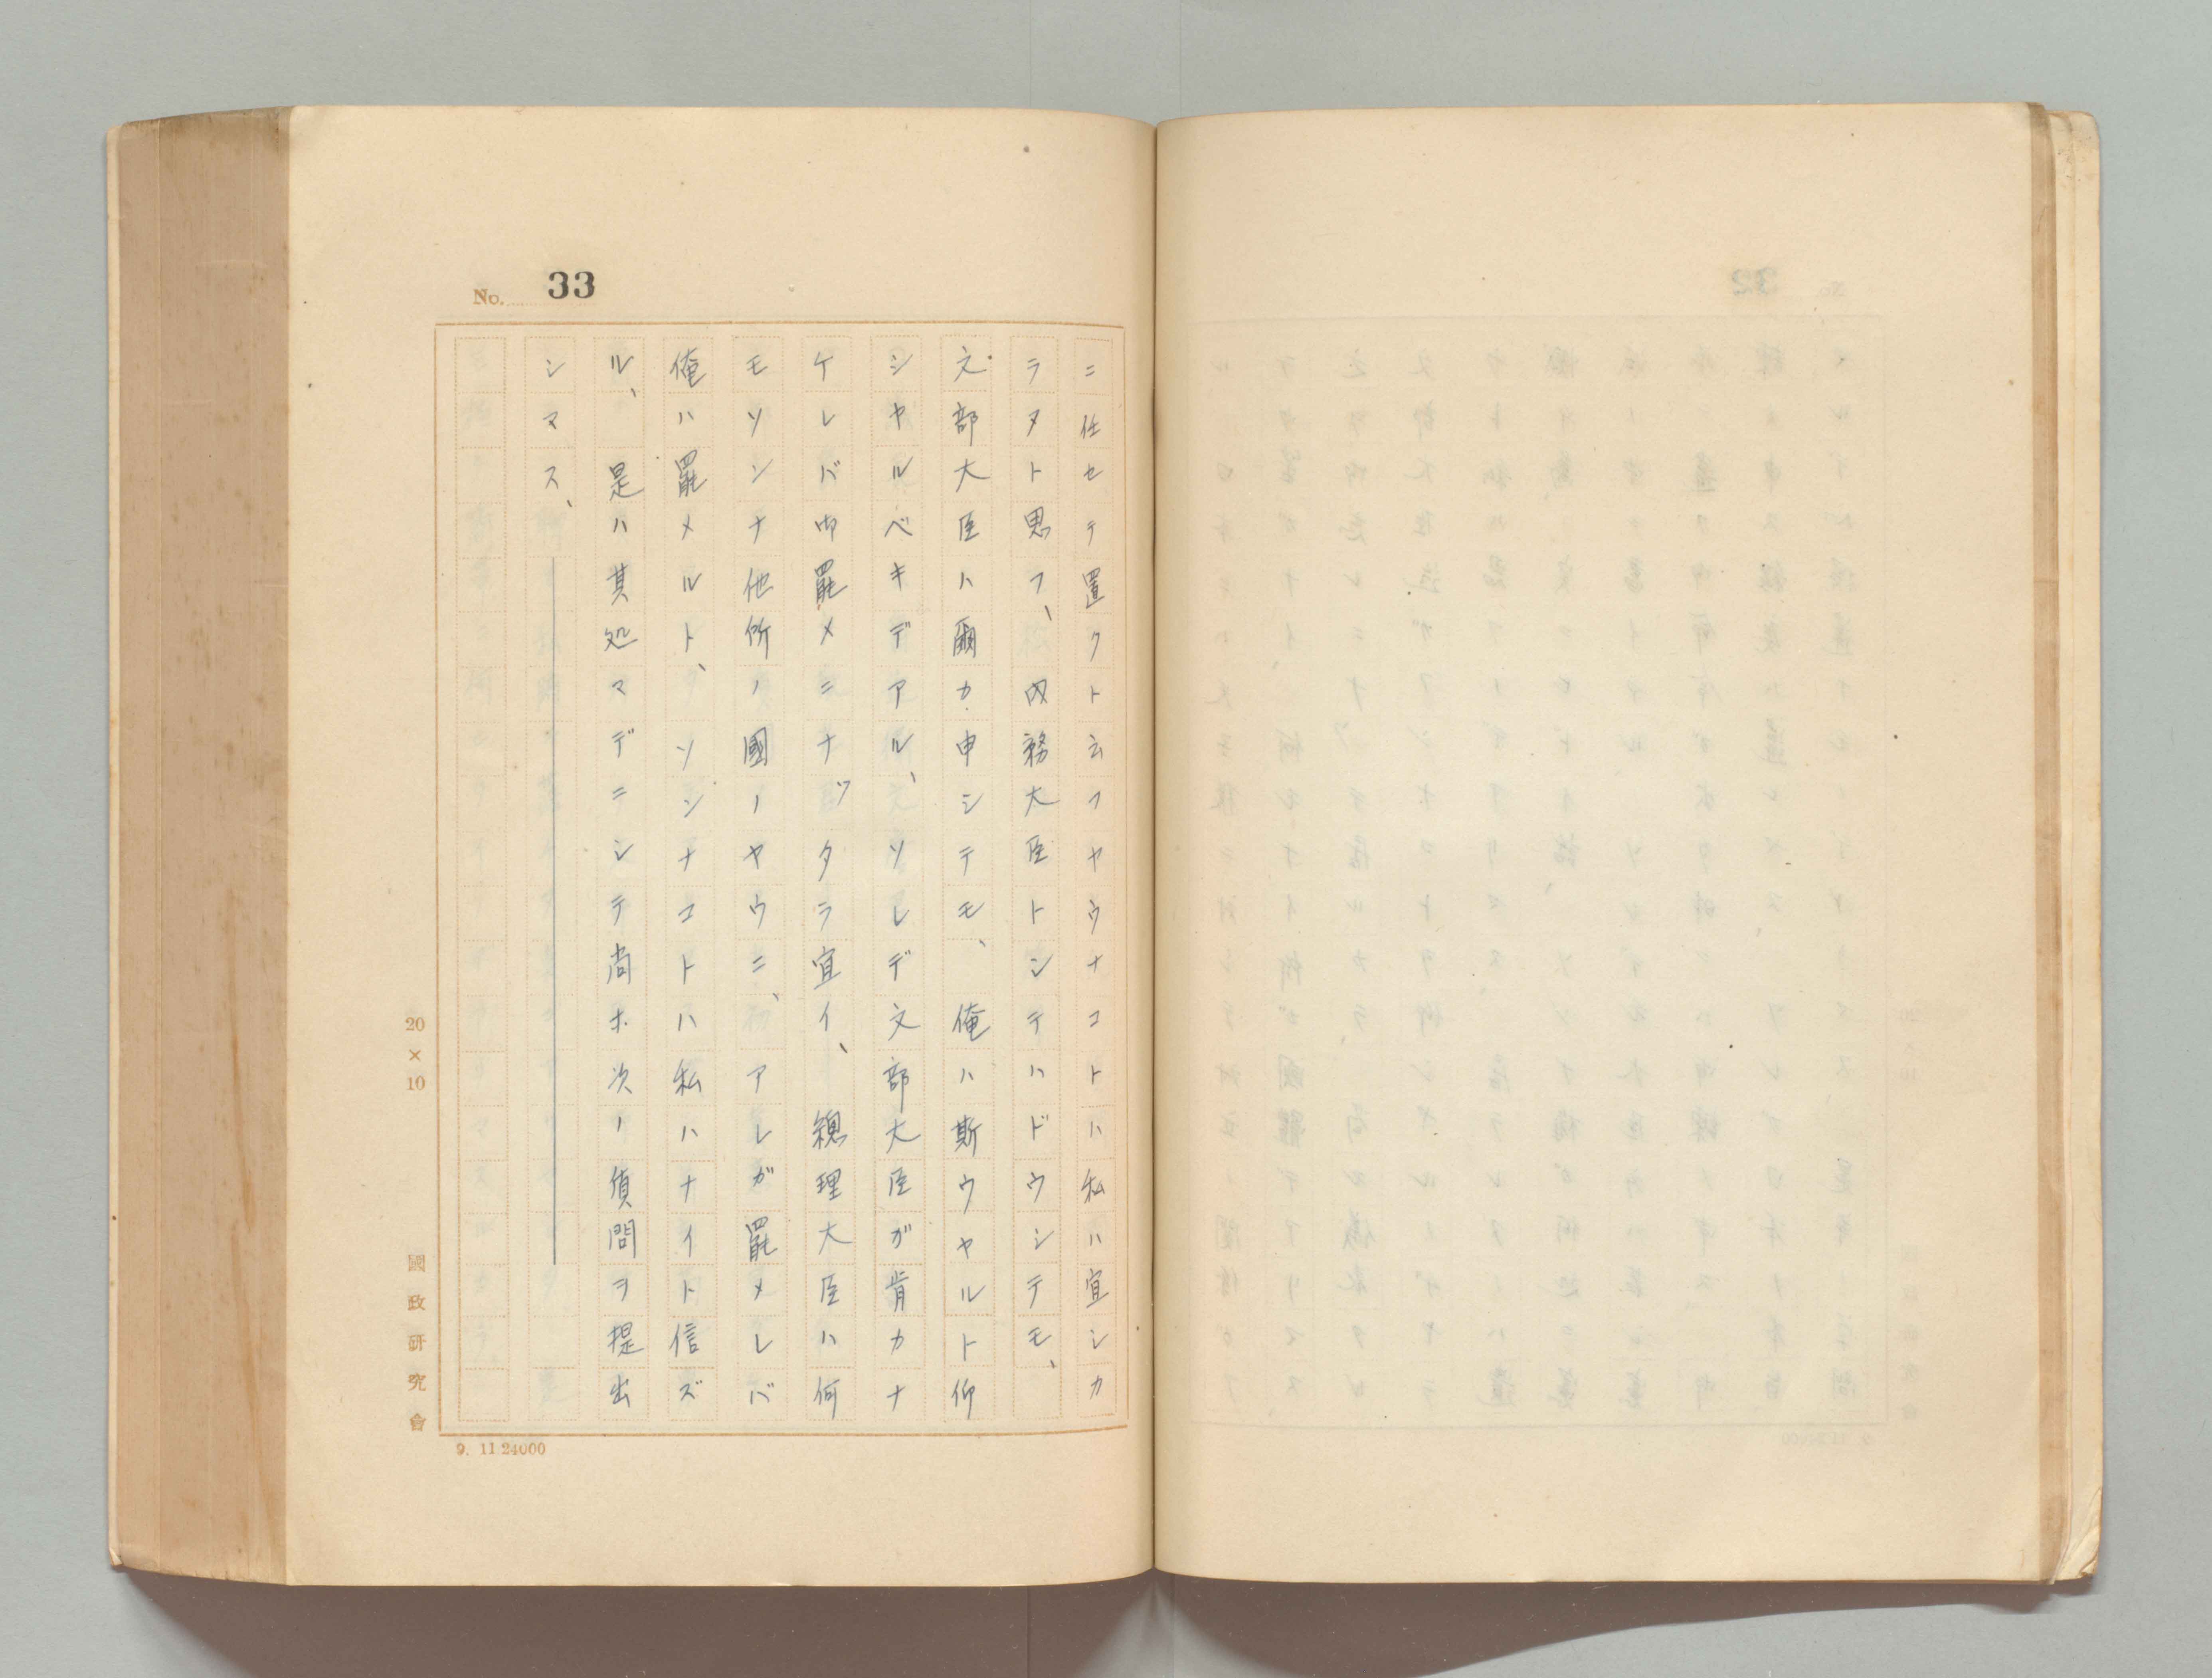 No. 33
ニ任セテ置クト云フヤウナコトハ私ハ宜シカ
ラヌト思フ、内務大臣トシテハドウシテモ、
文部大臣ハ爾カ申シテモ、俺ハ斯ウヤルト仰
シヤルベキデアル、ソレデ文部大臣ガ肯カナ
ケレバ御罷メニナツタラ宜イ、總理大臣ハ何
モソンナ他所ノ國ノヤウニ、アレガ罷メレバ
俺ハ罷メルト、ソンナコトハ私ハナイト信ズ
ル、是ハ其処マデニシテ尚ホ次ノ質問ヲ提出
シマス、
20×10
國政研究會
9. 11 24000